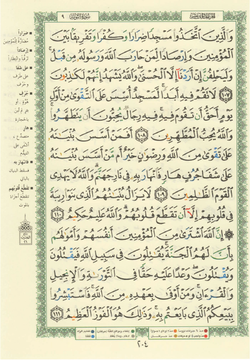 وَالَّذِينَ اتَّخَذُوا مَسْجِدًا ضِرَارًا وَكُفْرًا وَتَفْرِيقًا بَيْنَ
الْمُؤْمِنِينَ وَإِرْصَادًا لِّمَنْ حَارَبَ اللَّهَ وَرَسُولَهُ مِن قَبْلُ
وَلَيَحْلِفُنَّ إِنْ أَرَدْنَا إِلَّا الْحُسْنَىٰ وَاللَّهُ يَشْهَدُ إِنَّهُمْ لَكَاذِبُونَ
١٠٧ لَا تَقُمْ فِيهِ أَبَدًا لَّمَسْجِدٌ أُسِّسَ عَلَى التَّقْوَىٰ مِنْ أَوَّلِ
يَوْمٍ أَحَقُّ أَن تَقُومَ فِيهِ فِيهِ رِجَالٌ يُحِبُّونَ أَن يَتَطَهَّرُوا
وَاللَّهُ يُحِبُّ الْمُطَّهِّرِينَ ١٠٨ أَفَمَنْ أَسَّسَ بُنْيَانَهُ
عَلَىٰ تَقْوَىٰ مِنَ اللَّهِ وَرِضْوَانٍ خَيْرٌ أَم مَّنْ أَسَّسَ بُنْيَانَهُ
عَلَىٰ شَفَا جُرُفٍ هَارٍ فَانْهَارَ بِهِ فِي نَارِ جَهَنَّمَ وَاللَّهُ لَا يَهْدِي
الْقَوْمَ الظَّالِمِينَ ١٠٩ لَا يَزَالُ بُنْيَانُهُمُ الَّذِي بَنَوْا رِيبَةً
فِي قُلُوبِهِمْ إِلَّا أَن تَقَطَّعَ قُلُوبُهُمْ وَاللَّهُ عَلِيمٌ حَكِيمٌ ١١٠
إِنَّ اللَّهَ اشْتَرَىٰ مِنَ الْمُؤْمِنِينَ أَنفُسَهُمْ وَأَمْوَالَهُم
بِأَنَّ لَهُمُ الْجَنَّةَ يُقَاتِلُونَ فِي سَبِيلِ اللَّهِ فَيَقْتُلُونَ
وَيُقْتَلُونَ وَعْدًا عَلَيْهِ حَقًّا فِي التَّوْرَاةِ وَالْإِنجِيلِ
وَالْقُرْآنِ وَمَنْ أَوْفَىٰ بِعَهْدِهِ مِنَ اللَّهِ فَاسْتَبْشِرُوا
بِبَيْعِكُمُ الَّذِي بَايَعْتُم بِهِ وَذَٰلِكَ هُوَ الْفَوْزُ الْعَظِيمُ ١١١
٢٠٤